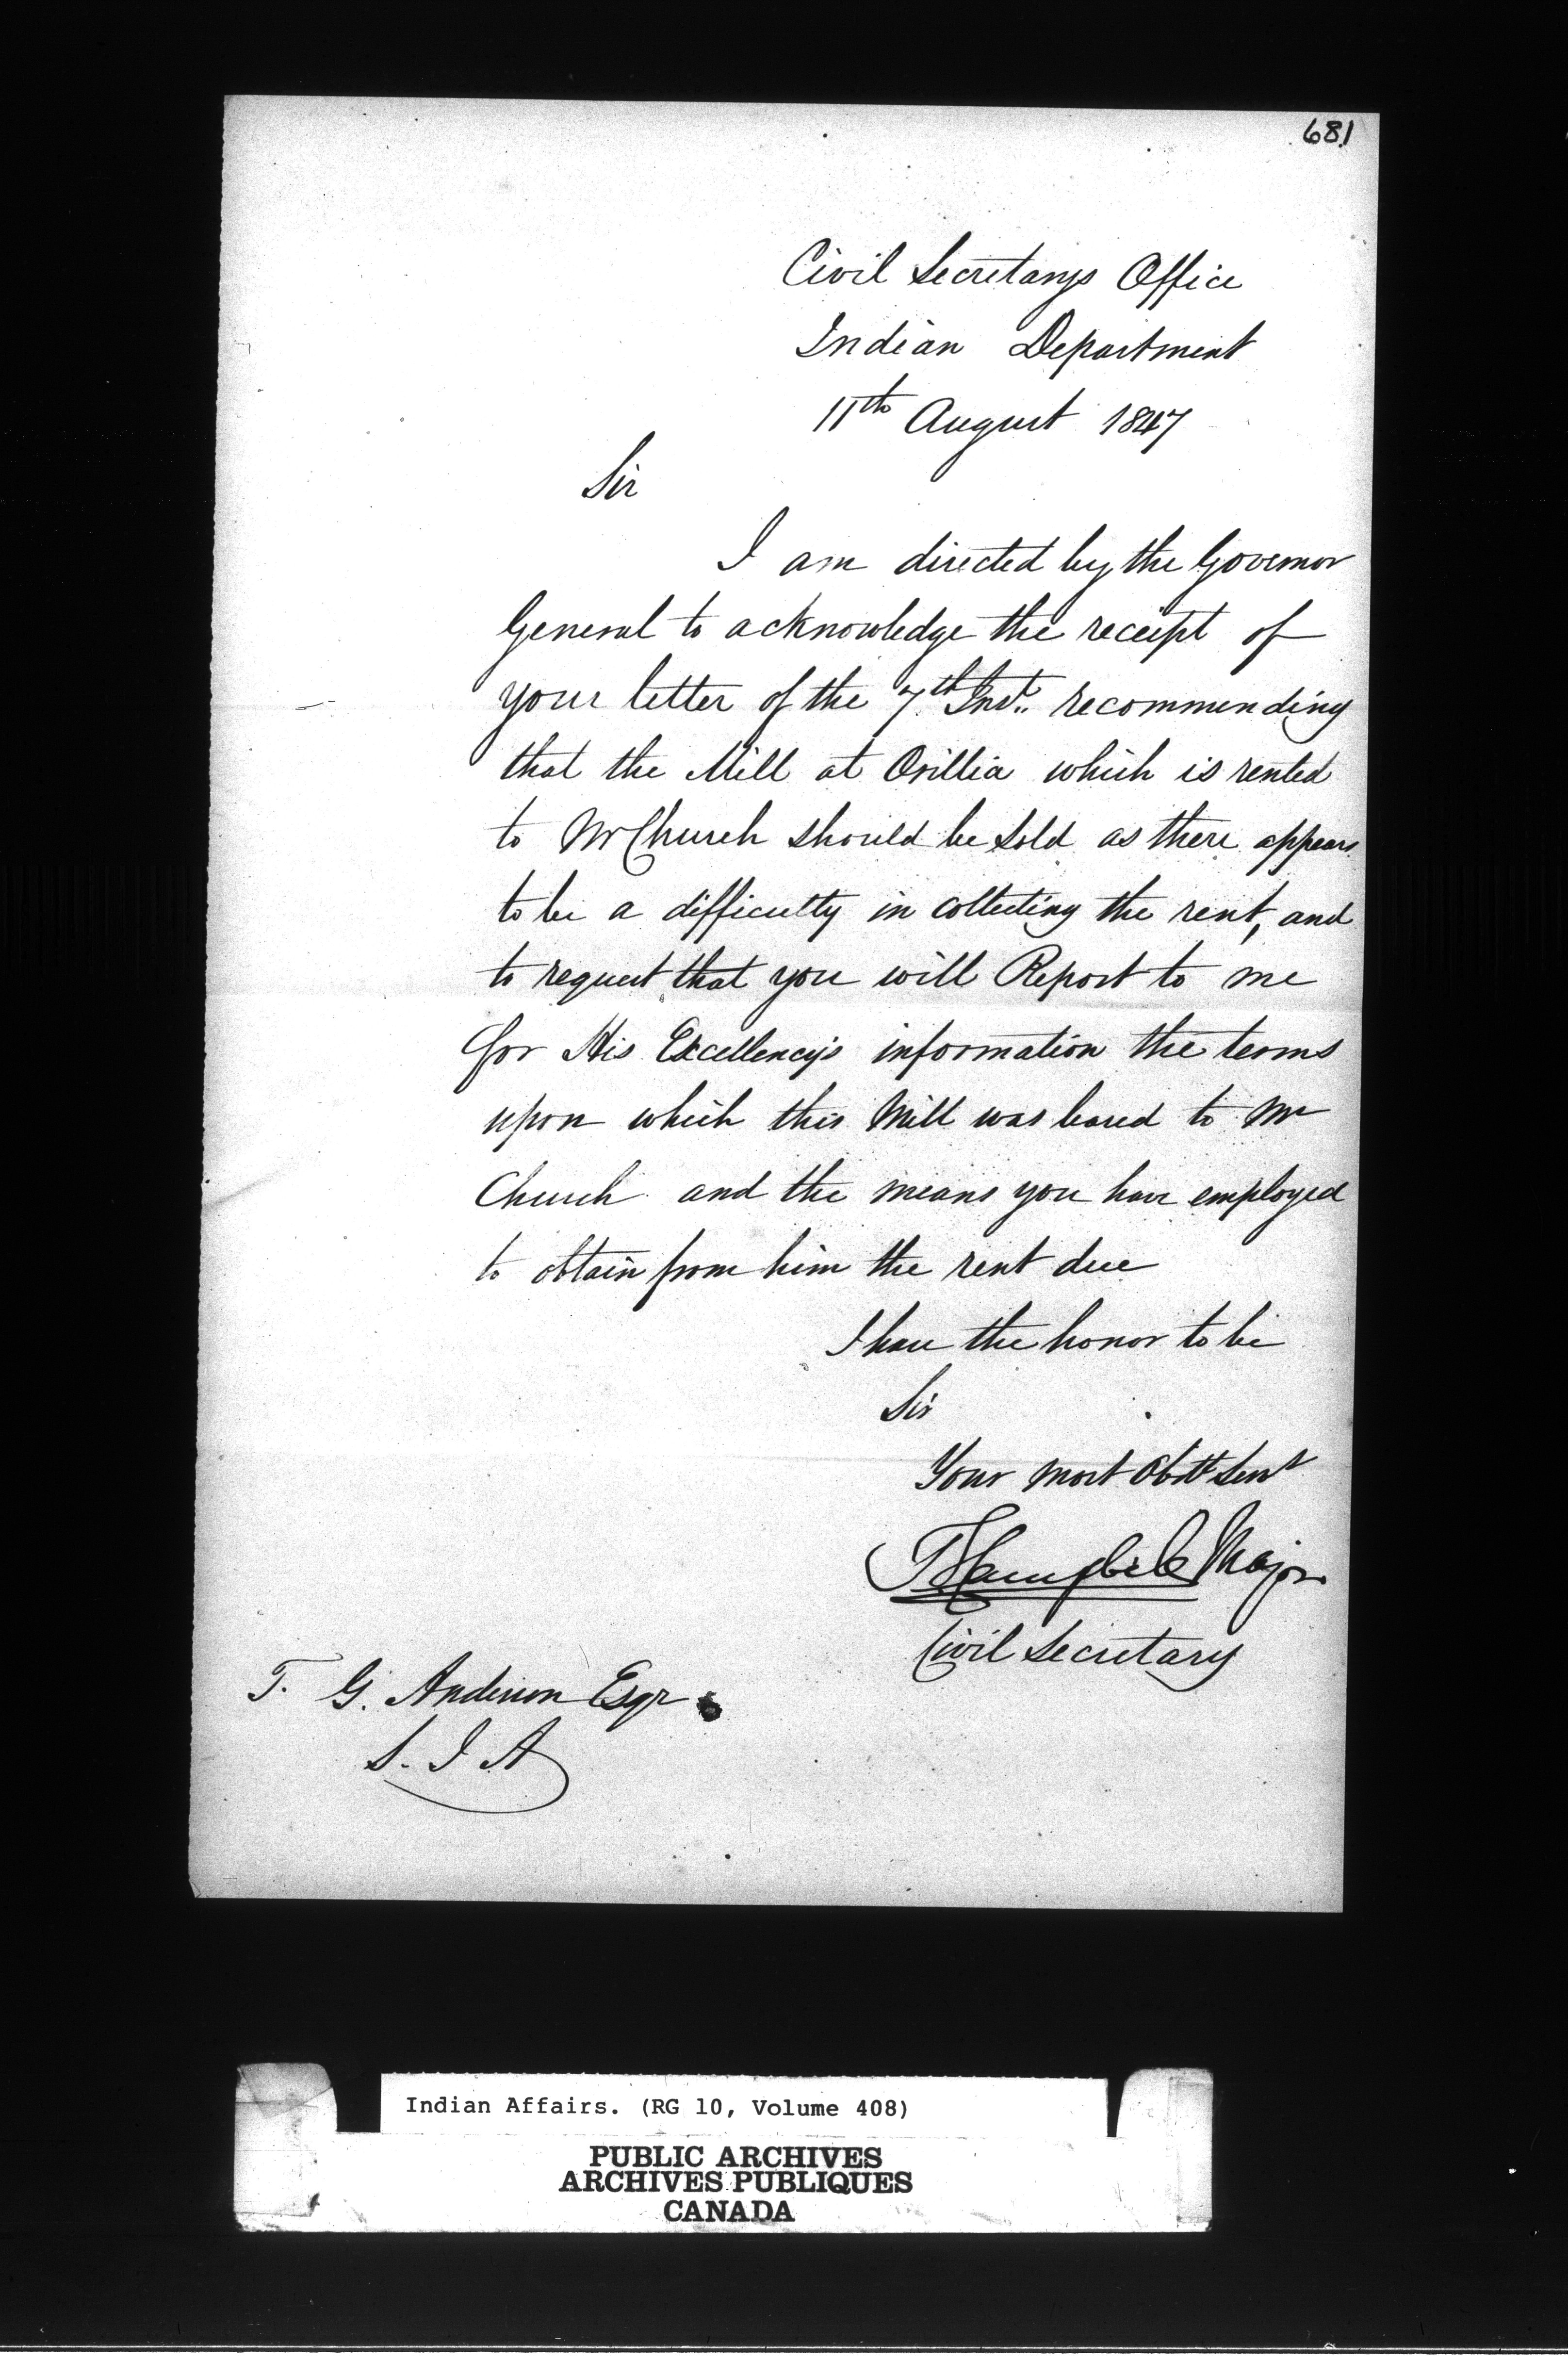 681
Civil Secretarys Office
Indian Department
11th August 1847
Sir
I am directed by the Governor
General to acknowledge the receipt of
your letter of the 7th Inst. recommending
that the Mill at Orillia which is rented
to Mr Church should be sold as there appears
to be a difficulty in collecting the rent, and
to request that you will Report to me
for His Excellency's information the terms
upon which this Mill was leased to Mr
Church and the means you have employed
to obtain from him the rent due
I have the honor to be
Sir
Your most Obdt Servt
T E Campbell Major
Civil Secretary
T. G. Anderson Esqr
S. I A
Indian Affairs. (RG 10, Volume 408)
PUBLIC ARCHIVES
ARCHIVES PUBLIQUES
CANADA